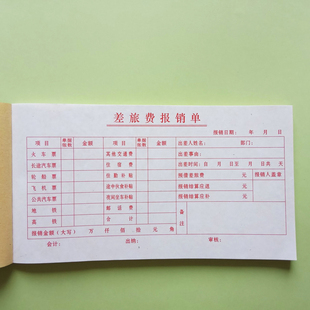 差旅费报销单
报销日期： 年 月 日
项目 单据张数 金额 项目 单据张数 金额 出差人姓名： 部门：
火车票 其他交通费 出差事由：
长途汽车票 住宿费 出差时间：自 月 日至 月 日共 天
轮船票 住勤补贴 预借差旅费 元 报销人盖章
飞机票 途中伙食补贴 报销结算应退 元
公共汽车票 夜间乘车补贴 报销结算应补 元
地铁 邮运费 备注
高铁 合计
报销金额（大写） 万 仟 佰 拾 元 角
会计： 出纳： 审核：